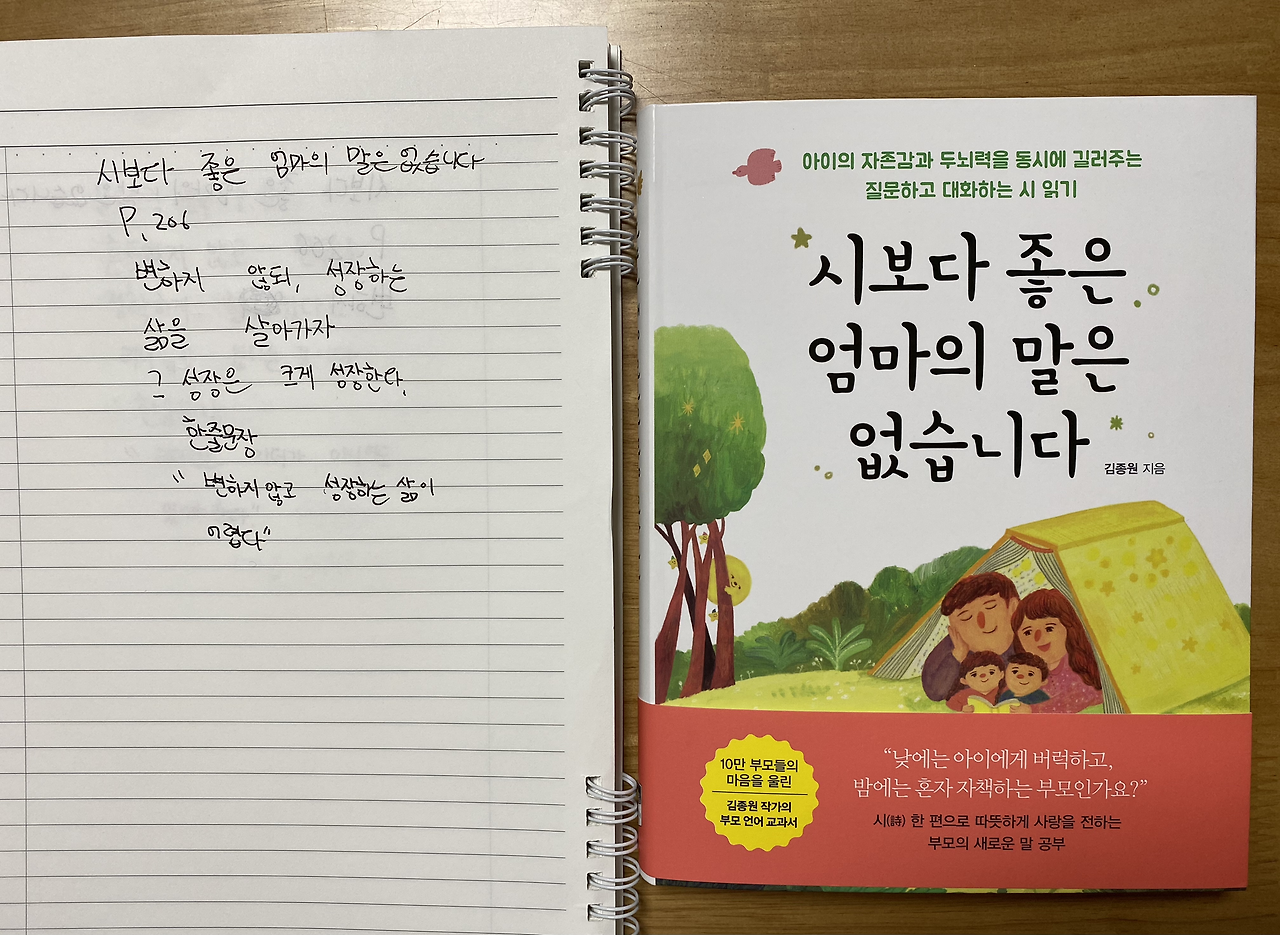 시보다 좋은 엄마의 말은 없습니다
P. 206
변하지 않되, 성장하는
삶을 살아가자
그 성장은 크게 성장한다.
한줄문장
"변하지 않고 성장하는 삶이
어렵다"
아이의 자존감과 두뇌력을 동시에 길러주는
질문하고 대화하는 시 읽기
시보다 좋은
엄마의 말은
없습니다
김종원 지음
10만 부모들의
마음을 울린
김종원 작가의
부모 언어 교과서
“낮에는 아이에게 버럭하고,
밤에는 혼자 자책하는 부모인가요?”
시(詩) 한 편으로 따뜻하게 사랑을 전하는
부모의 새로운 말 공부